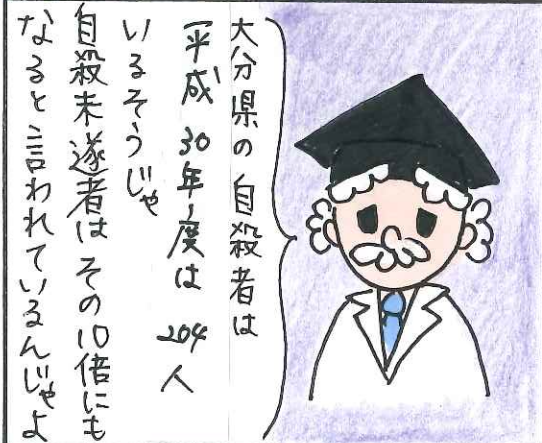 大分県の自殺者は
平成30年度は 204人
いるそうじゃ
自殺未遂者はその10倍にも
なると言われているんじゃよ